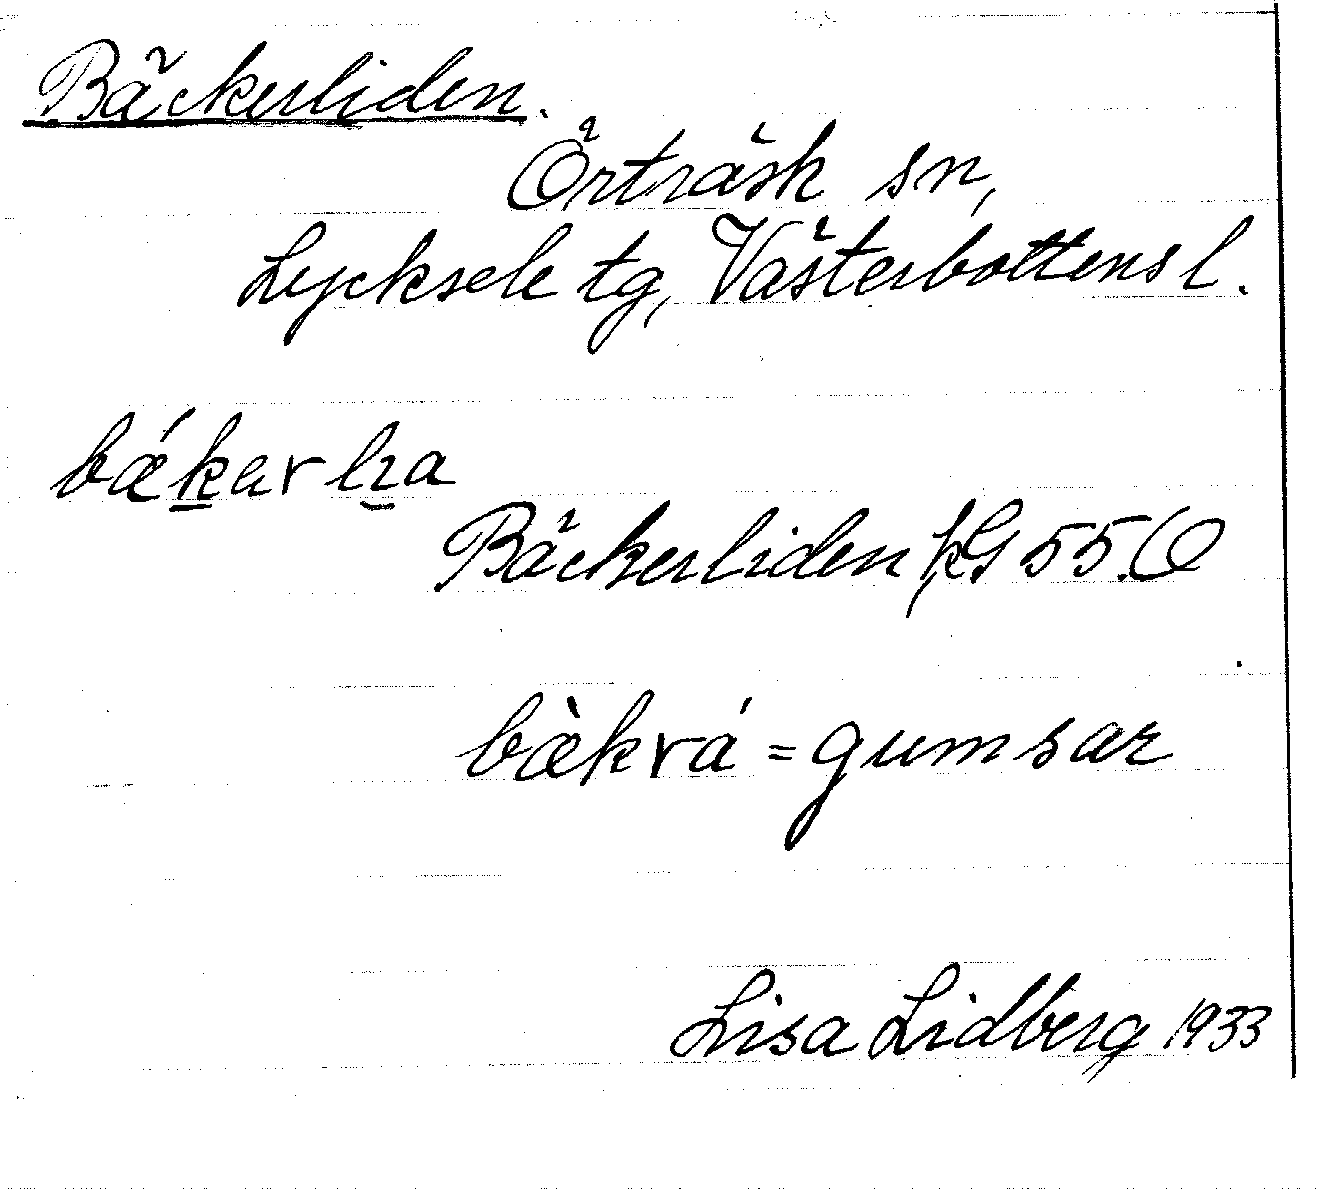 Bäckerliden.
Örträsk sn,
Lycksele tg, Västerbottens l.
bǽkerlıa
Bäckerliden kG 55.O
bæ̀krá = gumsar
Lisa Lidberg 1933